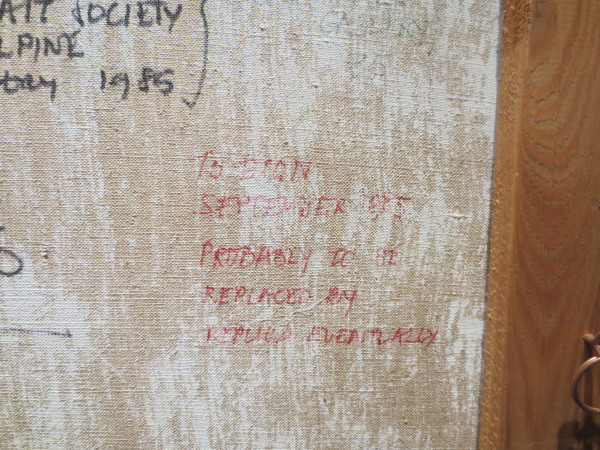 SOCIETY
LPINE
1985
TO
SEPTEMBER 1985
PROBABLY TO BE
REPLACED BY
REPLICA EVENTUALLY